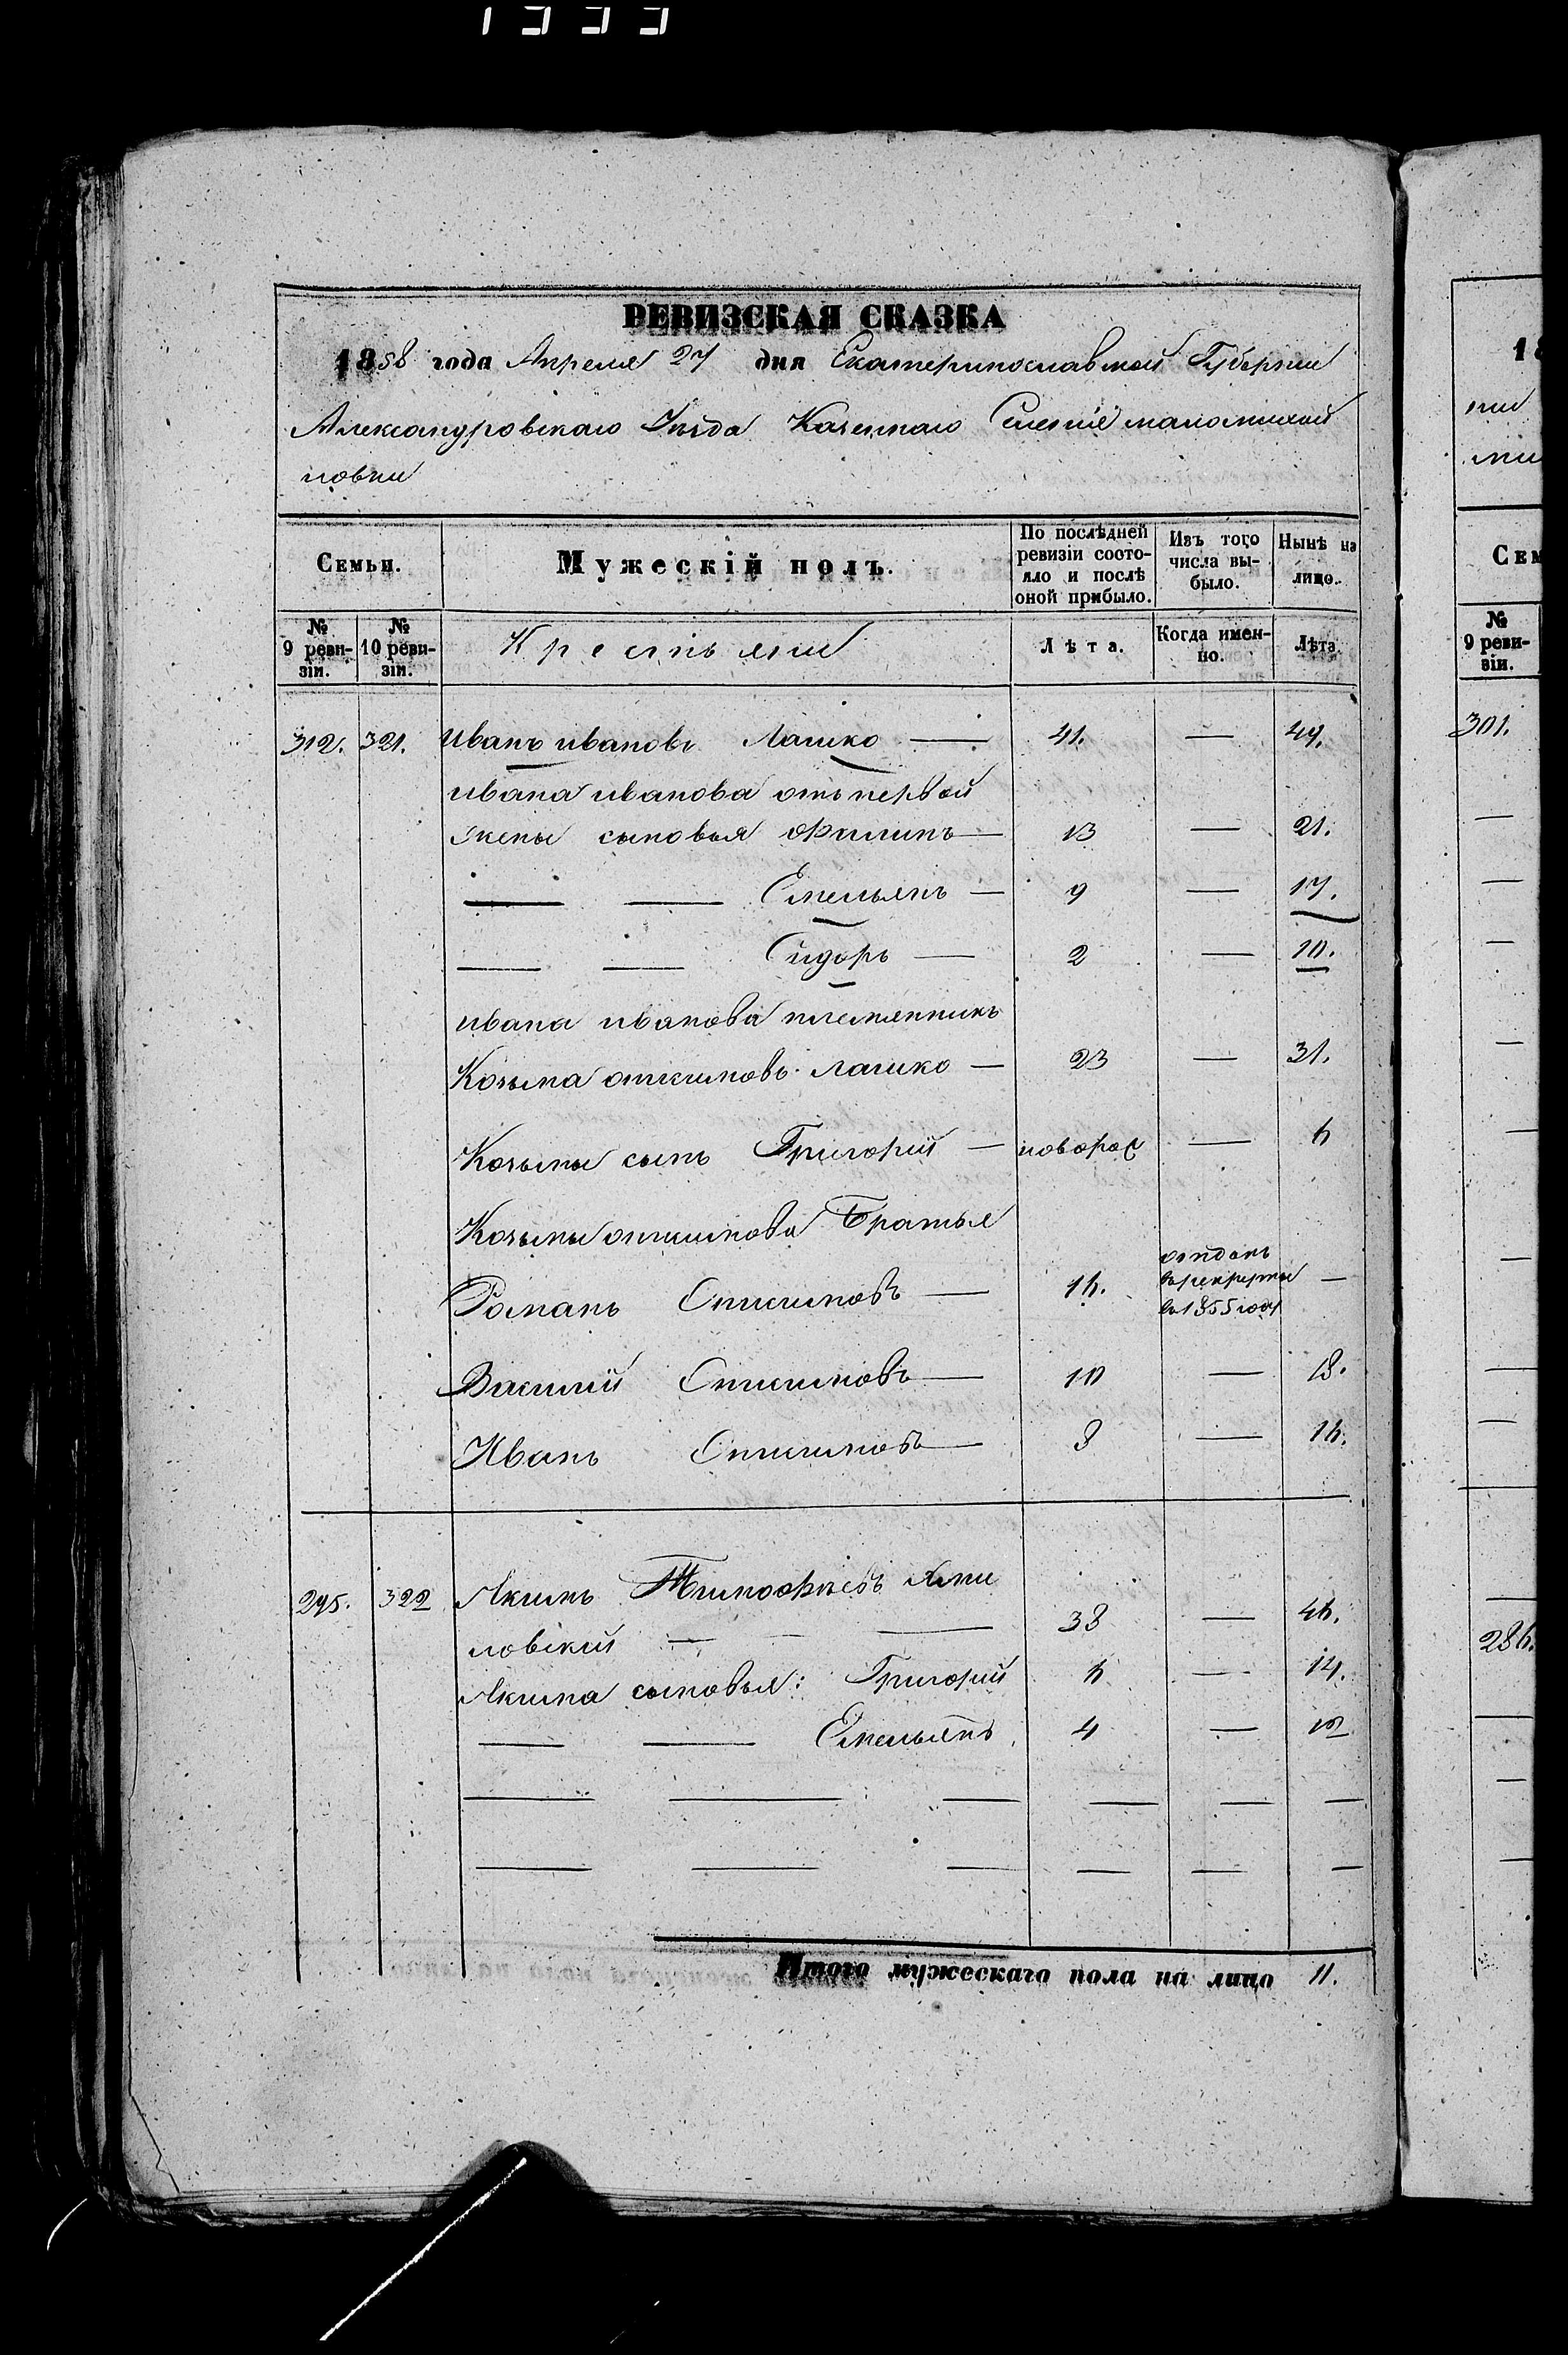 РЕВИЗСКАЯ СКАЗКА
1858 года Апреля 27 дня Екатеринославской Губернии
Александровскаго Уѣзда Казеннаго Селенія маломихай
ловки
Семьи. Мужескій полъ. По послѣдней ревизіи состояло и послѣ оной прибыло. Изъ того числа выбыло. Нынѣ на лицо.
№ 9 ревизіи. № 10 ревизіи. Крестьяни Лѣта. Когда именно. Лѣта
312. 321. Иванъ ивановъ Лашко — 41. — 49.
ивана иванова отъ первой
жены сыновья Филипъ — 13 — 21.
— — Емельянъ — 9 — 17.
— — Сидоръ — 2 — 10.
ивана иванова племянникъ
Козьма онисимовъ лашко — 23 — 31.
Козьмы сынъ Григорій — новорож — 6
Козьмы онисимова Братья
Романъ Онисимовъ — 16. отданъ в рекруты въ 1855 году —
Василій Онисимовъ — 10 — 18.
Иванъ Онисимовъ — 8 — 16.
295. 322 Якимъ Тимофѣевъ
ловскій — — — 38 — 46.
Якима сыновья: Григорій 6 — 14.
— — Емельянъ. 4 — 12
— — — — — —
— — — — — —
Итого мужескаго пола на лицо 11.
18
нии
ми
Сем
№ 9 ревизіи.
301.
286.